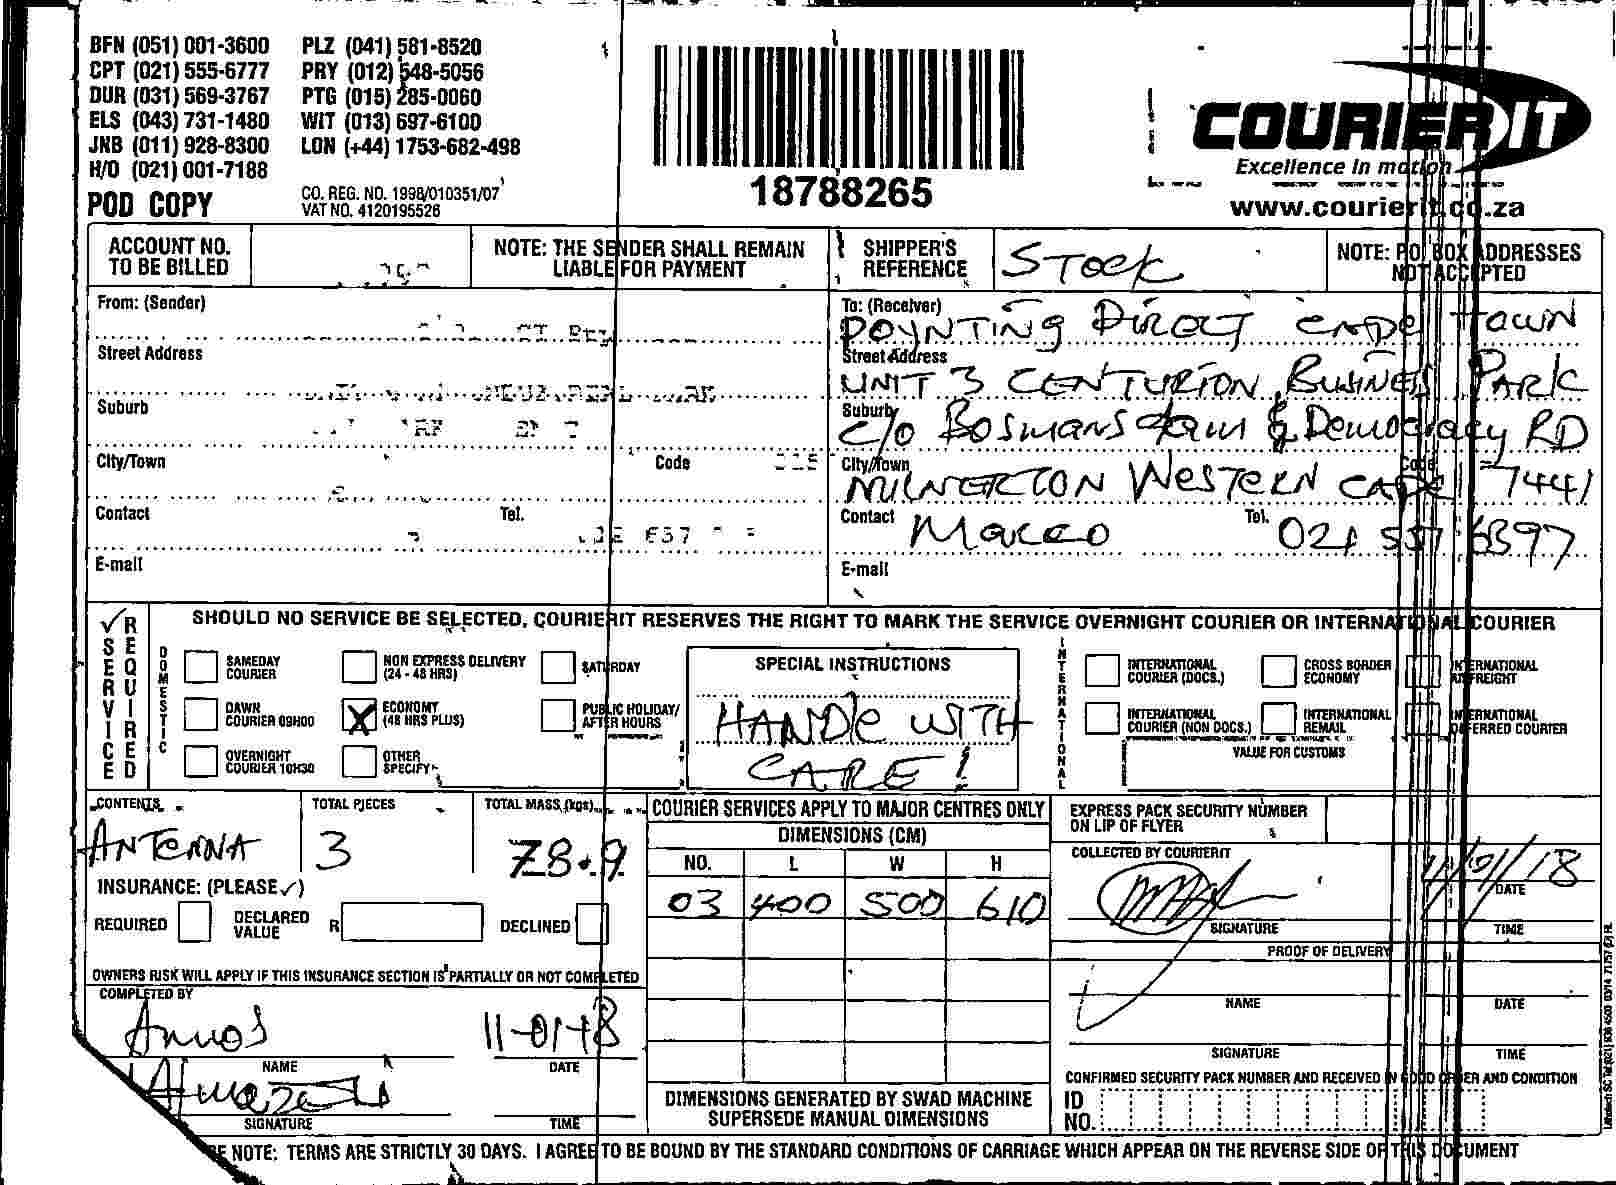 BFN (051) 001-3600 PLZ (041) 581-8520
CPT (021) 555-6777 PRY (012) 548-5056
DUR (031) 569-3767 PTG (015) 285-0060
ELS (043) 731-1480 WIT (013) 697-6100
JNB (011) 928-8300 LON (+44) 1753-682-498
H/O (021) 001-7188
POD COPY
CO. REG. NO. 1998/010351/07
VAT NO. 4120195526
18788265
COURIER IT
Excellence in motion
www.courierit.co.za
ACCOUNT NO.
TO BE BILLED
NOTE: THE SENDER SHALL REMAIN
LIABLE FOR PAYMENT
SHIPPER'S
REFERENCE
STOCK
NOTE: PO BOX ADDRESSES
NOT ACCEPTED
From: (Sender)
Street Address
Suburb
City/Town Code
Contact Tel.
E-mail
To: (Receiver)
POYNTING DIRECT CAPE TOWN
Street Address
UNIT 3 CENTURION BUSINESS PARK
Suburb
C/O BOSMANS DAM & DEMOCRACY RD
City/Town Code
MILNERTON WESTERN CAPE 7441
Contact Tel.
MARCO 021 551 6397
E-mail
SERVICE REQUIRED
DOMESTIC
SHOULD NO SERVICE BE SELECTED, COURIERIT RESERVES THE RIGHT TO MARK THE SERVICE OVERNIGHT COURIER OR INTERNATIONAL COURIER
SAMEDAY
COURIER
NON EXPRESS DELIVERY
(24 - 48 HRS)
SATURDAY
DAWN
COURIER 09H00
X
ECONOMY
(48 HRS PLUS)
PUBLIC HOLIDAY/
AFTER HOURS
OVERNIGHT
COURIER 10H30
OTHER
SPECIFY
SPECIAL INSTRUCTIONS
HANDLE WITH
CARE!
INTERNATIONAL
INTERNATIONAL
COURIER (DOCS.)
CROSS BORDER
ECONOMY
INTERNATIONAL
AIRFREIGHT
INTERNATIONAL
COURIER (NON DOCS.)
INTERNATIONAL
REMAIL
INTERNATIONAL
DEFERRED COURIER
VALUE FOR CUSTOMS
CONTENTS
ANTENNA
TOTAL PIECES
3
TOTAL MASS (kgs)
78.9
INSURANCE: (PLEASE ✓)
REQUIRED
DECLARED
VALUE
R
DECLINED
OWNERS RISK WILL APPLY IF THIS INSURANCE SECTION IS PARTIALLY OR NOT COMPLETED
COMPLETED BY
11-01-18
NAME DATE
SIGNATURE TIME
COURIER SERVICES APPLY TO MAJOR CENTRES ONLY
DIMENSIONS (CM)
NO. L W H
03 400 500 610
DIMENSIONS GENERATED BY SWAD MACHINE
SUPERSEDE MANUAL DIMENSIONS
EXPRESS PACK SECURITY NUMBER
ON LIP OF FLYER
COLLECTED BY COURIERIT
11/01/18
DATE
SIGNATURE TIME
PROOF OF DELIVERY
NAME DATE
SIGNATURE TIME
CONFIRMED SECURITY PACK NUMBER AND RECEIVED IN GOOD ORDER AND CONDITION
ID
NO.
NOTE: TERMS ARE STRICTLY 30 DAYS. I AGREE TO BE BOUND BY THE STANDARD CONDITIONS OF CARRIAGE WHICH APPEAR ON THE REVERSE SIDE OF THIS DOCUMENT